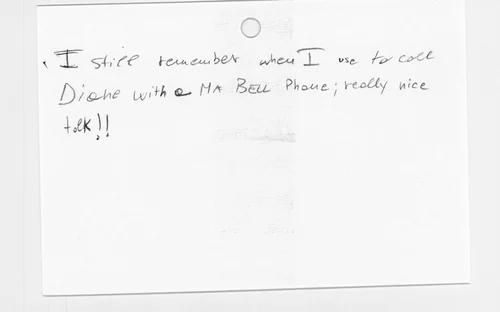 I still remember when I use to call
Diane with a MA BELL Phone; really nice
talk!!